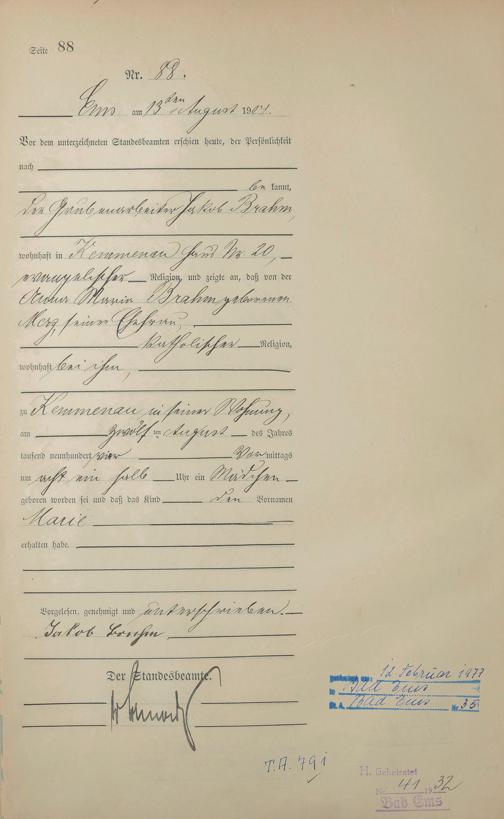 Seite 88
Nr. 88.
Ems am 13ten August 1904.
Vor dem unterzeichneten Standesbeamten erschien heute, der Persönlichkeit
nach
be kannt,
der Grubenarbeiter Jakob Brahm,
wohnhaft in Kemmenau Haus Nr. 20,
evangelischer Religion, und zeigte an, daß von der
Anna Maria Brahm geborenen
Merz, seiner Ehefrau,
katholischer Religion,
wohnhaft bei ihm,
zu Kemmenau, in seiner Wohnung,
am zwölften August des Jahres
tausend neunhundert vier Vor mittags
um acht ein halb Uhr ein Mädchen
geboren worden sei und daß das Kind den Vornamen
Marie
erhalten habe.
Vorgelesen, genehmigt und unterschrieben.
Jakob Brahm
Der Standesbeamte.
12. Februar 1977
in Bad Ems
St. A. Bad Ems Nr. 35
T.A. 791
H. Geheiratet
Nr. 41 1932
Bad Ems